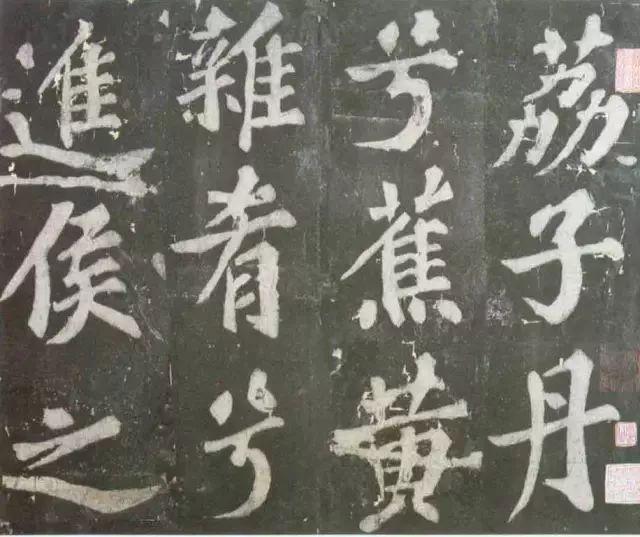 荔子丹
兮蕉黄
雜肴兮
進侯之